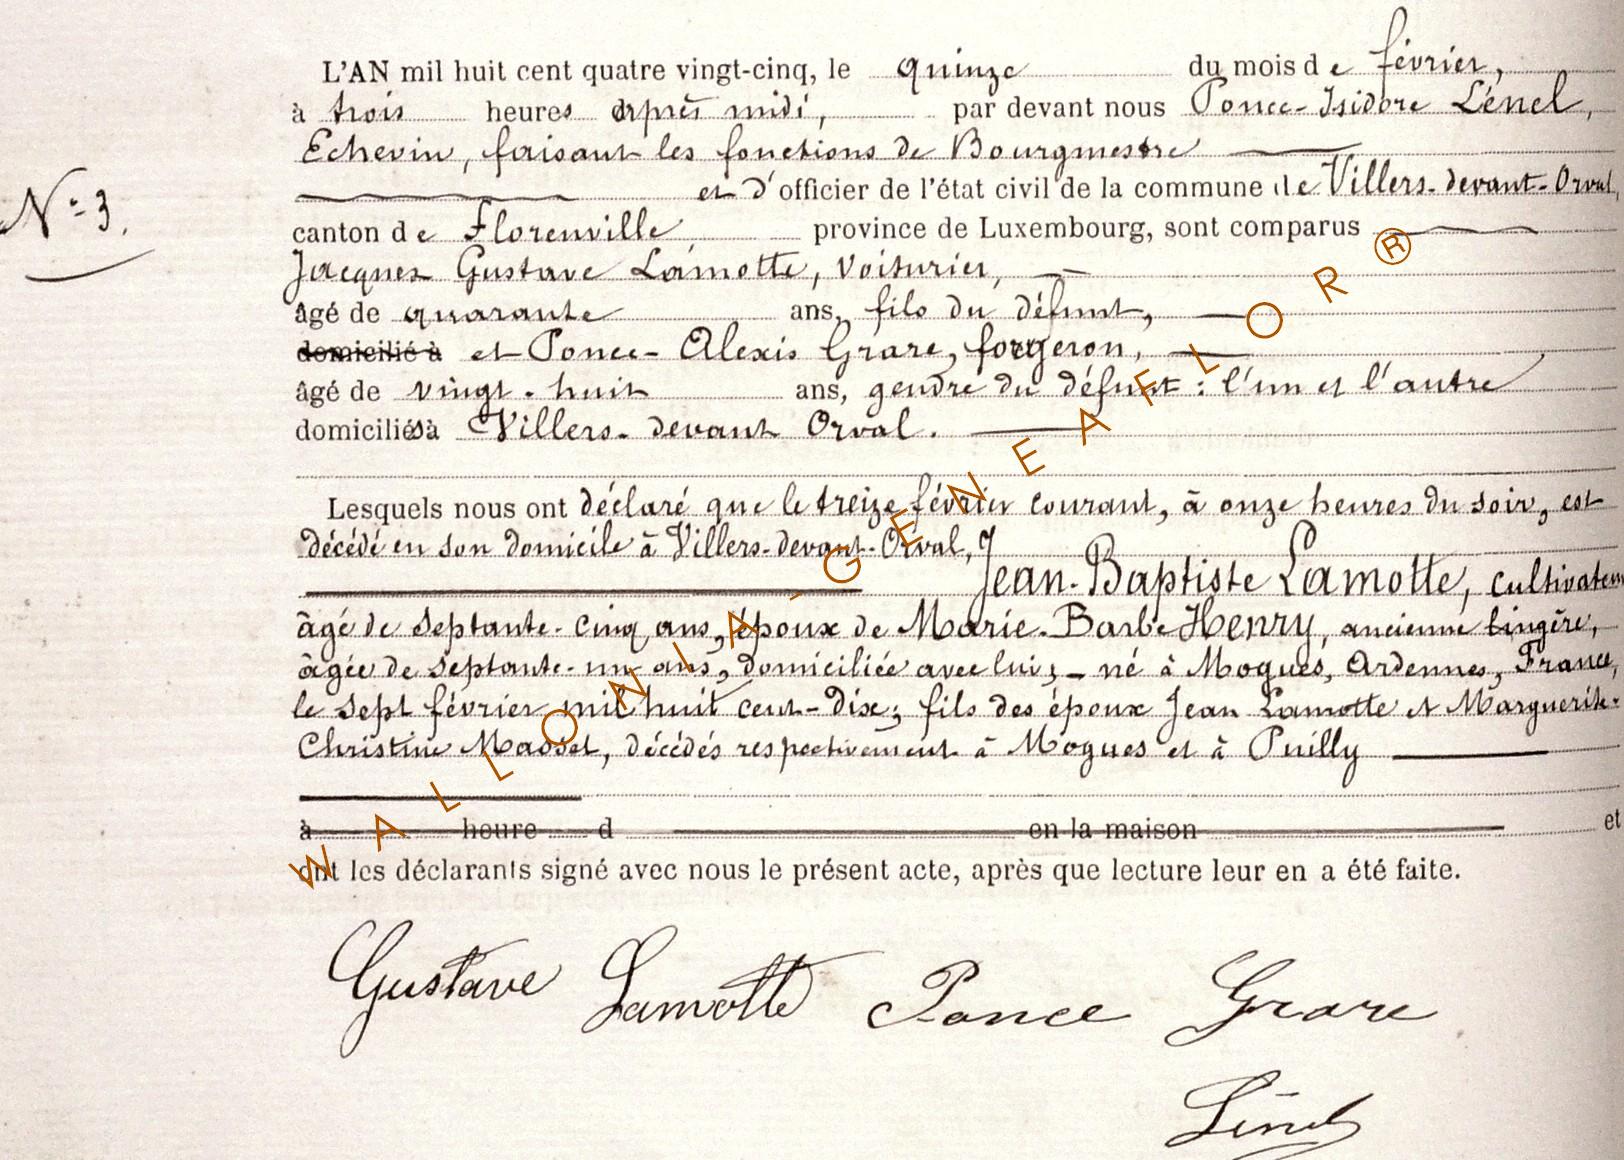 L'AN mil huit cent quatre vingt-cinq, le quinze du mois de février,
à trois heures après midi, par devant nous Ponce-Isidore Lénel,
Echevin, faisant les fonctions de Bourgmestre
et d'officier de l'état civil de la commune de Villers-devant-Orval,
N° 3.
canton de Florenville, province de Luxembourg, sont comparus
Jacques Gustave Lamotte, voiturier,
âgé de quarante ans, fils du défunt,
domicilié à et Ponce-Alexis Grare, forgeron,
âgé de vingt-huit ans, gendre du défunt : l'un et l'autre
domiciliés à Villers-devant Orval.
Lesquels nous ont déclaré que le treize février courant, à onze heures du soir, est
décédé en son domicile à Villers-devant-Orval,
Jean-Baptiste Lamotte, cultivateur
âgé de septante-cinq ans, époux de Marie-Barbe Henry, ancienne lingère,
âgée de septante-un ans, domiciliée avec lui; - né à Mogues, Ardennes, France,
le sept février mil huit cent-dix; fils des époux Jean Lamotte et Marguerite-
Christine Masset, décédés respectivement à Mogues et à Puilly
à heure d en la maison et
ont les déclarants signé avec nous le présent acte, après que lecture leur en a été faite.
Gustave Lamotte Ponce Grare
Lénel
WALLONIA-GENEAFLOR®